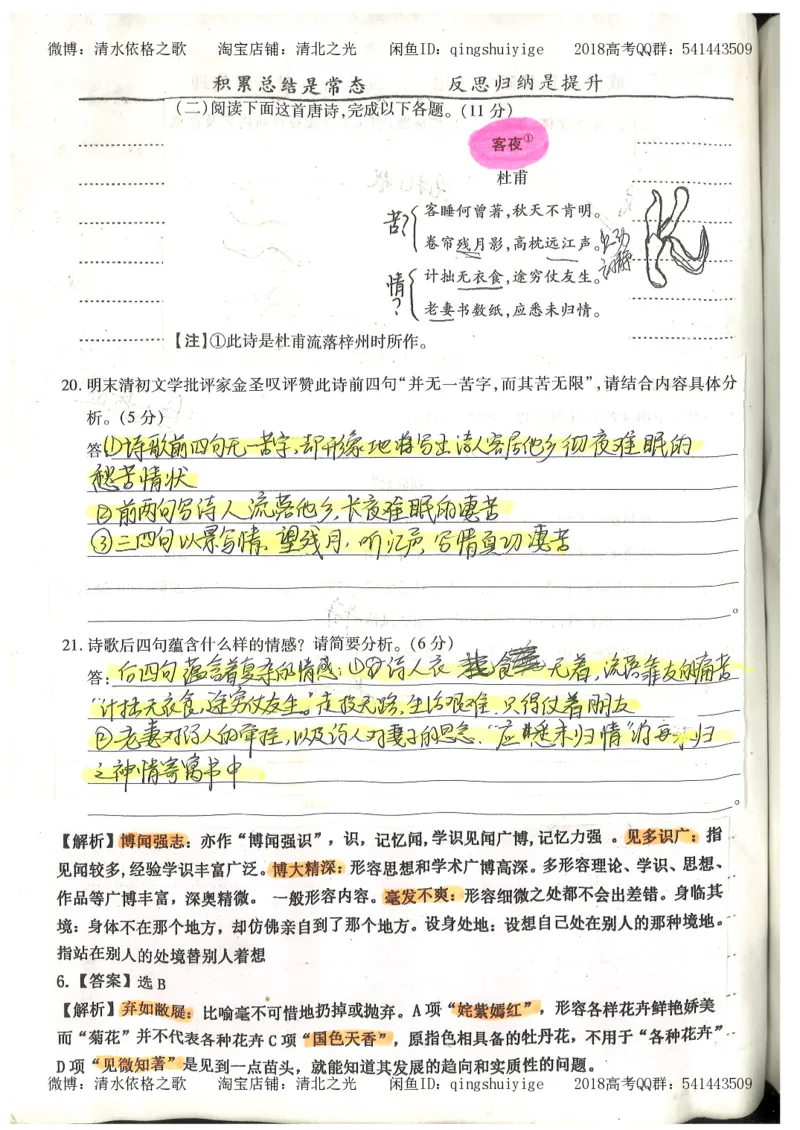 微博：清水依格之歌 淘宝店铺：清北之光 闲鱼ID：qingshuiyige 2018高考QQ群：541443509
积累总结是常态 反思归纳是提升
(二)阅读下面这首唐诗,完成以下各题。(11分)
客夜①
杜甫
客睡何曾著,秋天不肯明。
苦?
卷帘残月影,高枕远江声。
计拙无衣食,途穷仗友生。
情?
老妻书数纸,应悉未归情。
【注】①此诗是杜甫流落梓州时所作。
20. 明末清初文学批评家金圣叹评赞此诗前四句“并无一苦字,而其苦无限”,请结合内容具体分
析。(5分)
答①诗歌前四句无一苦字,却形象地写出诗人客居他乡彻夜难眠的
愁苦情状
②前两句写诗人流落他乡,长夜难眠的凄苦
③三四句以景写情,望残月,听江声,写情真切凄苦
21. 诗歌后四句蕴含什么样的情感？请简要分析。(6分)
答：后四句蕴含着复杂的情感：①诗人衣食无着,流落靠友的痛苦
“计拙无衣食,途穷仗友生。”走投无路,生活艰难,只得仗着朋友
②老妻对诗人的牵挂,以及诗人对妻子的思念,“应悉未归情”将归
之神情寄寓书中
【解析】博闻强志：亦作“博闻强识”，识，记忆闻,学识见闻广博,记忆力强 。见多识广：指
见闻较多,经验学识丰富广泛。博大精深：形容思想和学术广博高深。多形容理论、学识、思想、
作品等广博丰富，深奥精微。 一般形容内容。毫发不爽：形容细微之处都不会出差错。身临其
境：身体不在那个地方，却仿佛亲自到了那个地方。设身处地：设想自己处在别人的那种境地。
指站在别人的处境替别人着想
6.【答案】选B
【解析】弃如敝屣：比喻毫不可惜地扔掉或抛弃。A项“姹紫嫣红”，形容各样花卉鲜艳娇美
而“菊花”并不代表各种花卉C项“国色天香”，原指色相具备的牡丹花，不用于“各种花卉”
D项“见微知著”是见到一点苗头，就能知道其发展的趋向和实质性的问题。
微博：清水依格之歌 淘宝店铺：清北之光 闲鱼ID：qingshuiyige 2018高考QQ群：541443509